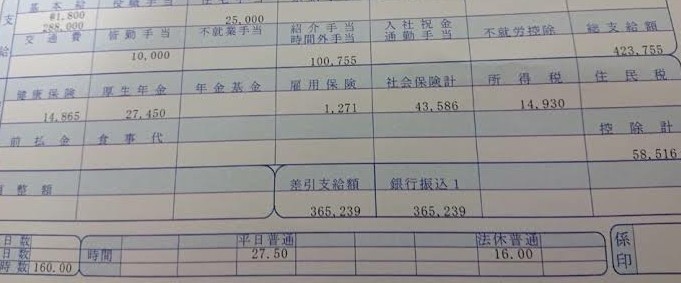 基本給 役職手当 住宅手当
支 ¥1,800 25,000
288,000
交通費 皆勤手当 不就業手当 紹介手当 入社祝金 不就労控除 総支給額
給 時間外手当 通勤手当
10,000 100,755 423,755
健康保険 厚生年金 年金基金 雇用保険 社会保険計 所得税 住民税
14,865 27,450 1,271 43,586 14,930
前払金 食事代 控除計
58,516
整額 差引支給額 銀行振込1
365,239 365,239
日数 平日普通 法休普通 係
日数 時間 27.50 16.00 印
時数 160.00